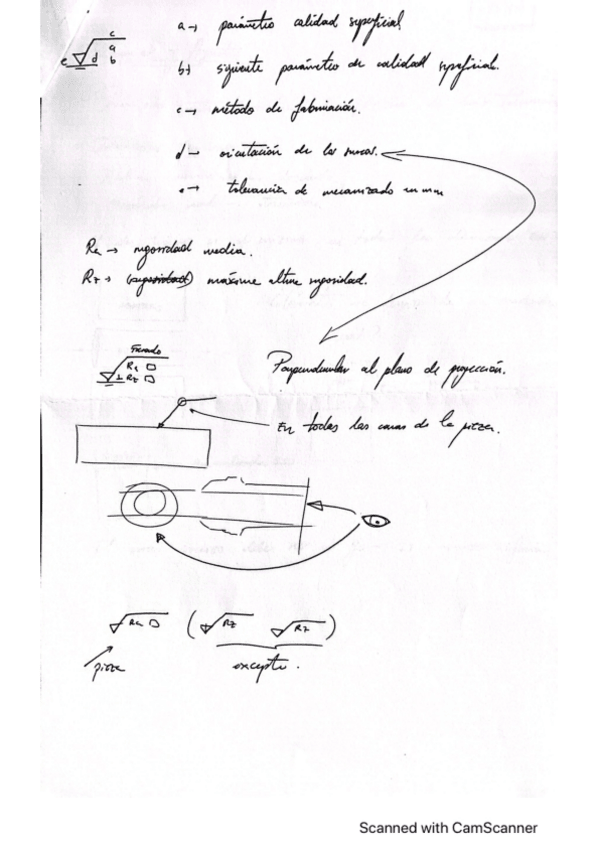 c
a
e d b
a → parámetro calidad superficial.
b → siguiente parámetro de calidad superficial.
c → método de fabricación.
d → orientación de las
e → tolerancia de mecanizado en mm
Ra → rugosidad media.
Rz → (rugosidad) máxima altura rugosidad.
Fresado
Ra
⊥ Rz
Perpendicular al plano de proyección.
En todas las caras de la pieza.
Ra ( Rz Rz )
pieza
excepto.
Scanned with CamScanner